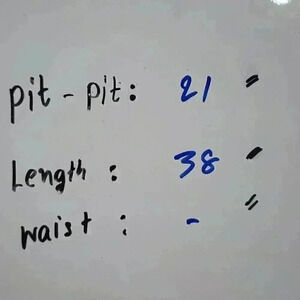 pit - pit: 21 "
Length : 38 "
waist : - "